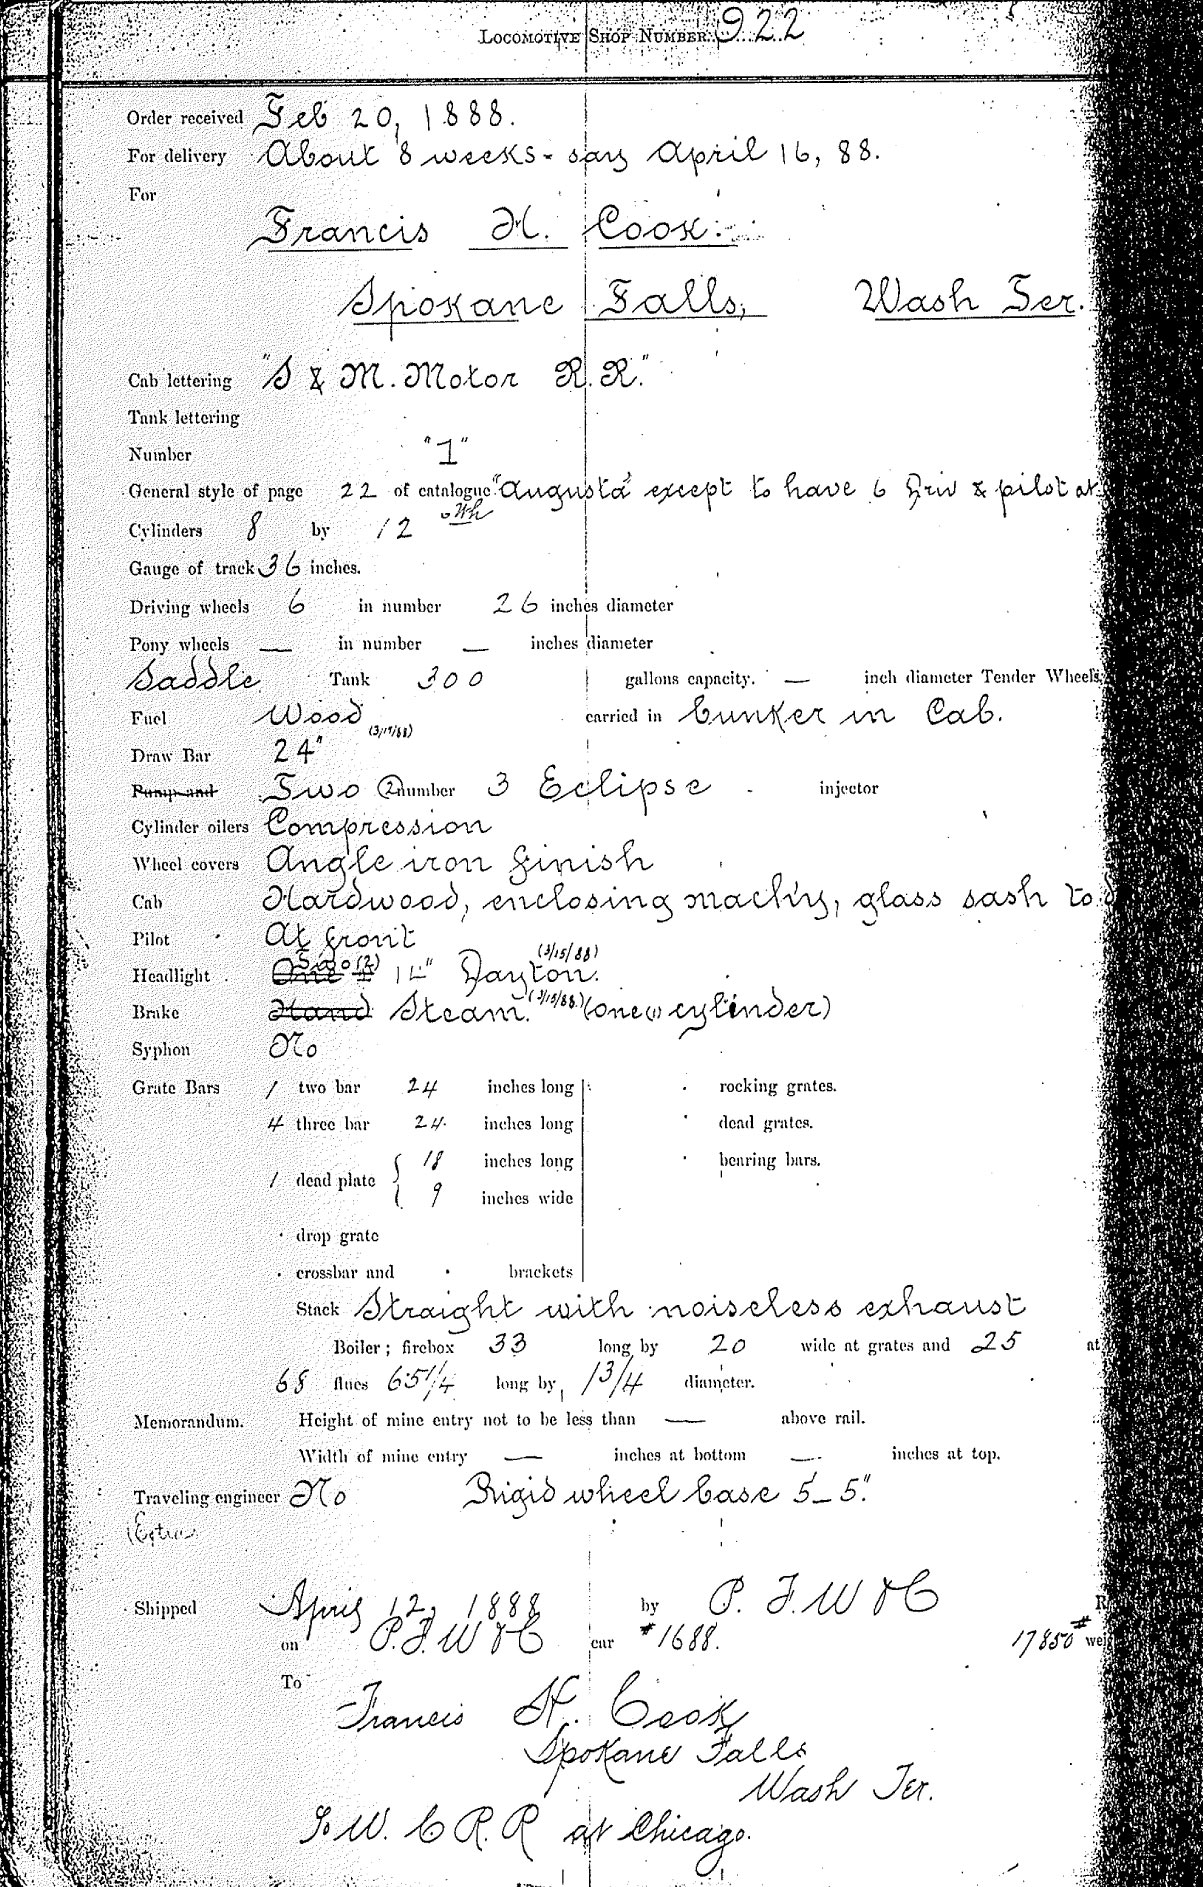 LOCOMOTIVE SHOP NUMBER 922
Order received Feb 20, 1888.
For delivery About 8 weeks - say April 16, 88.
For
Francis H. Cook.
Spokane Falls, Wash Ter.
Cab lettering "S & M. Motor R.R."
Tank lettering
Number "1"
General style of page 22 of catalogue "Augusta" except to have 6 Driv & pilot at
Wh
Cylinders 8 by 12
Gauge of track 36 inches.
Driving wheels 6 in number 26 inches diameter
Pony wheels — in number — inches diameter
Saddle Tank 300 gallons capacity. — inch diameter Tender Wheels,
Fuel Wood carried in bunker in Cab.
(3/17/88)
Draw Bar 24"
Pump and Two (2) number 3 Eclipse injector
Cylinder oilers Compression
Wheel covers Angle iron finish
Cab Hardwood, enclosing mach'ry, glass sash to
Pilot At front
Two (2) (3/15/88)
Headlight One 14" Dayton.
Brake Hand Steam. (3/15/88) (one (1) cylinder)
Syphon No
Grate Bars 1 two bar 24 inches long rocking grates.
4 three bar 24 inches long dead grates.
1 dead plate { 18 inches long bearing bars.
9 inches wide
drop grate
crossbar and brackets
Stack Straight with noiseless exhaust
Boiler; firebox 33 long by 20 wide at grates and 25 at
68 flues 65 1/4 long by 1 3/4 diameter.
Memorandum. Height of mine entry not to be less than — above rail.
Width of mine entry — inches at bottom — inches at top.
Traveling engineer No Rigid wheel base 5-5."
(Extra
Shipped April 12, 1888 by P. F. W & C
on P. F. W & C car #1688. 17850# wei
To
Francis H. Cook
Spokane Falls
Wash Ter.
R. R at Chicago.